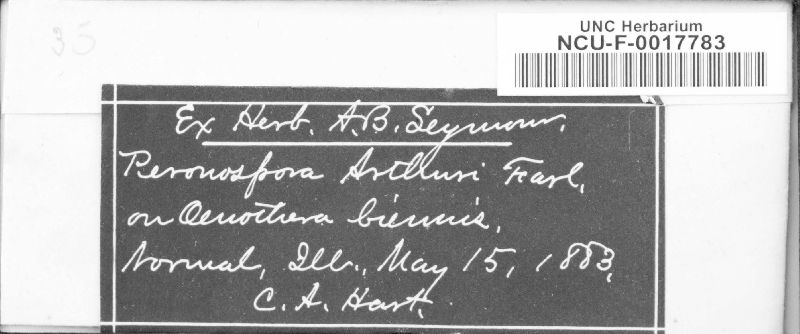 UNC Herbarium
NCU-F-0017783
Ex Herb. A.B. Seymour.
Peronospora Arthuri Farl.
on Oenothera biennis.
Normal, Ill., May 15, 1883.
C. A. Hart.